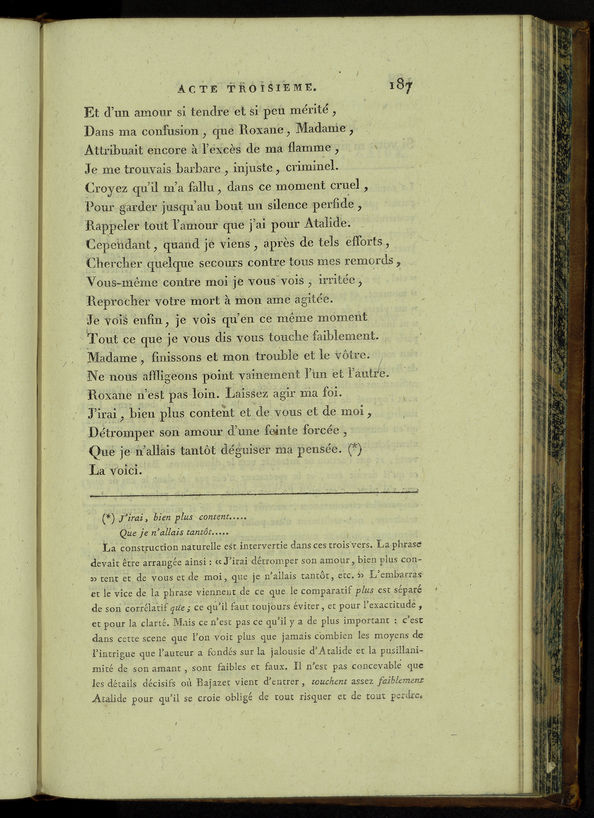 ACTE TROISIEME. 187
Et d'un amour si tendre et si peu mérité,
Dans ma confusion, que Roxane, Madame,
Attribuait encore à l'excès de ma flamme,
Je me trouvais barbare, injuste, criminel.
Croyez qu'il m'a fallu, dans ce moment cruel,
Pour garder jusqu'au bout un silence perfide,
Rappeler tout l'amour que j'ai pour Atalide.
Cependant, quand je viens, après de tels efforts,
Chercher quelque secours contre tous mes remords,
Vous-même contre moi je vous vois, irritée,
Reprocher votre mort à mon ame agitée.
Je vois enfin, je vois qu'en ce même moment
Tout ce que je vous dis vous touche faiblement.
Madame, finissons et mon trouble et le vôtre.
Ne nous affligeons point vainement l'un et l'autre.
Roxane n'est pas loin. Laissez agir ma foi.
J'irai, bien plus content et de vous et de moi,
Détromper son amour d'une feinte forcée,
Que je n'allais tantôt déguiser ma pensée. (*)
La voici.
(*) J'irai, bien plus content.....
Que je n'allais tantôt.....
La construction naturelle est intervertie dans ces trois vers. La phrase
devait être arrangée ainsi : « J'irai détromper son amour, bien plus con-
» tent et de vous et de moi, que je n'allais tantôt, etc. » L'embarras
et le vice de la phrase viennent de ce que le comparatif plus est séparé
de son corrélatif que ; ce qu'il faut toujours éviter, et pour l'exactitude,
et pour la clarté. Mais ce n'est pas ce qu'il y a de plus important : c'est
dans cette scene que l'on voit plus que jamais combien les moyens de
l'intrigue que l'auteur a fondés sur la jalousie d'Atalide et la pusillani-
mité de son amant, sont faibles et faux. Il n'est pas concevable que
les détails décisifs où Bajazet vient d'entrer, touchent assez faiblement
Atalide pour qu'il se croie obligé de tout risquer et de tout perdre.